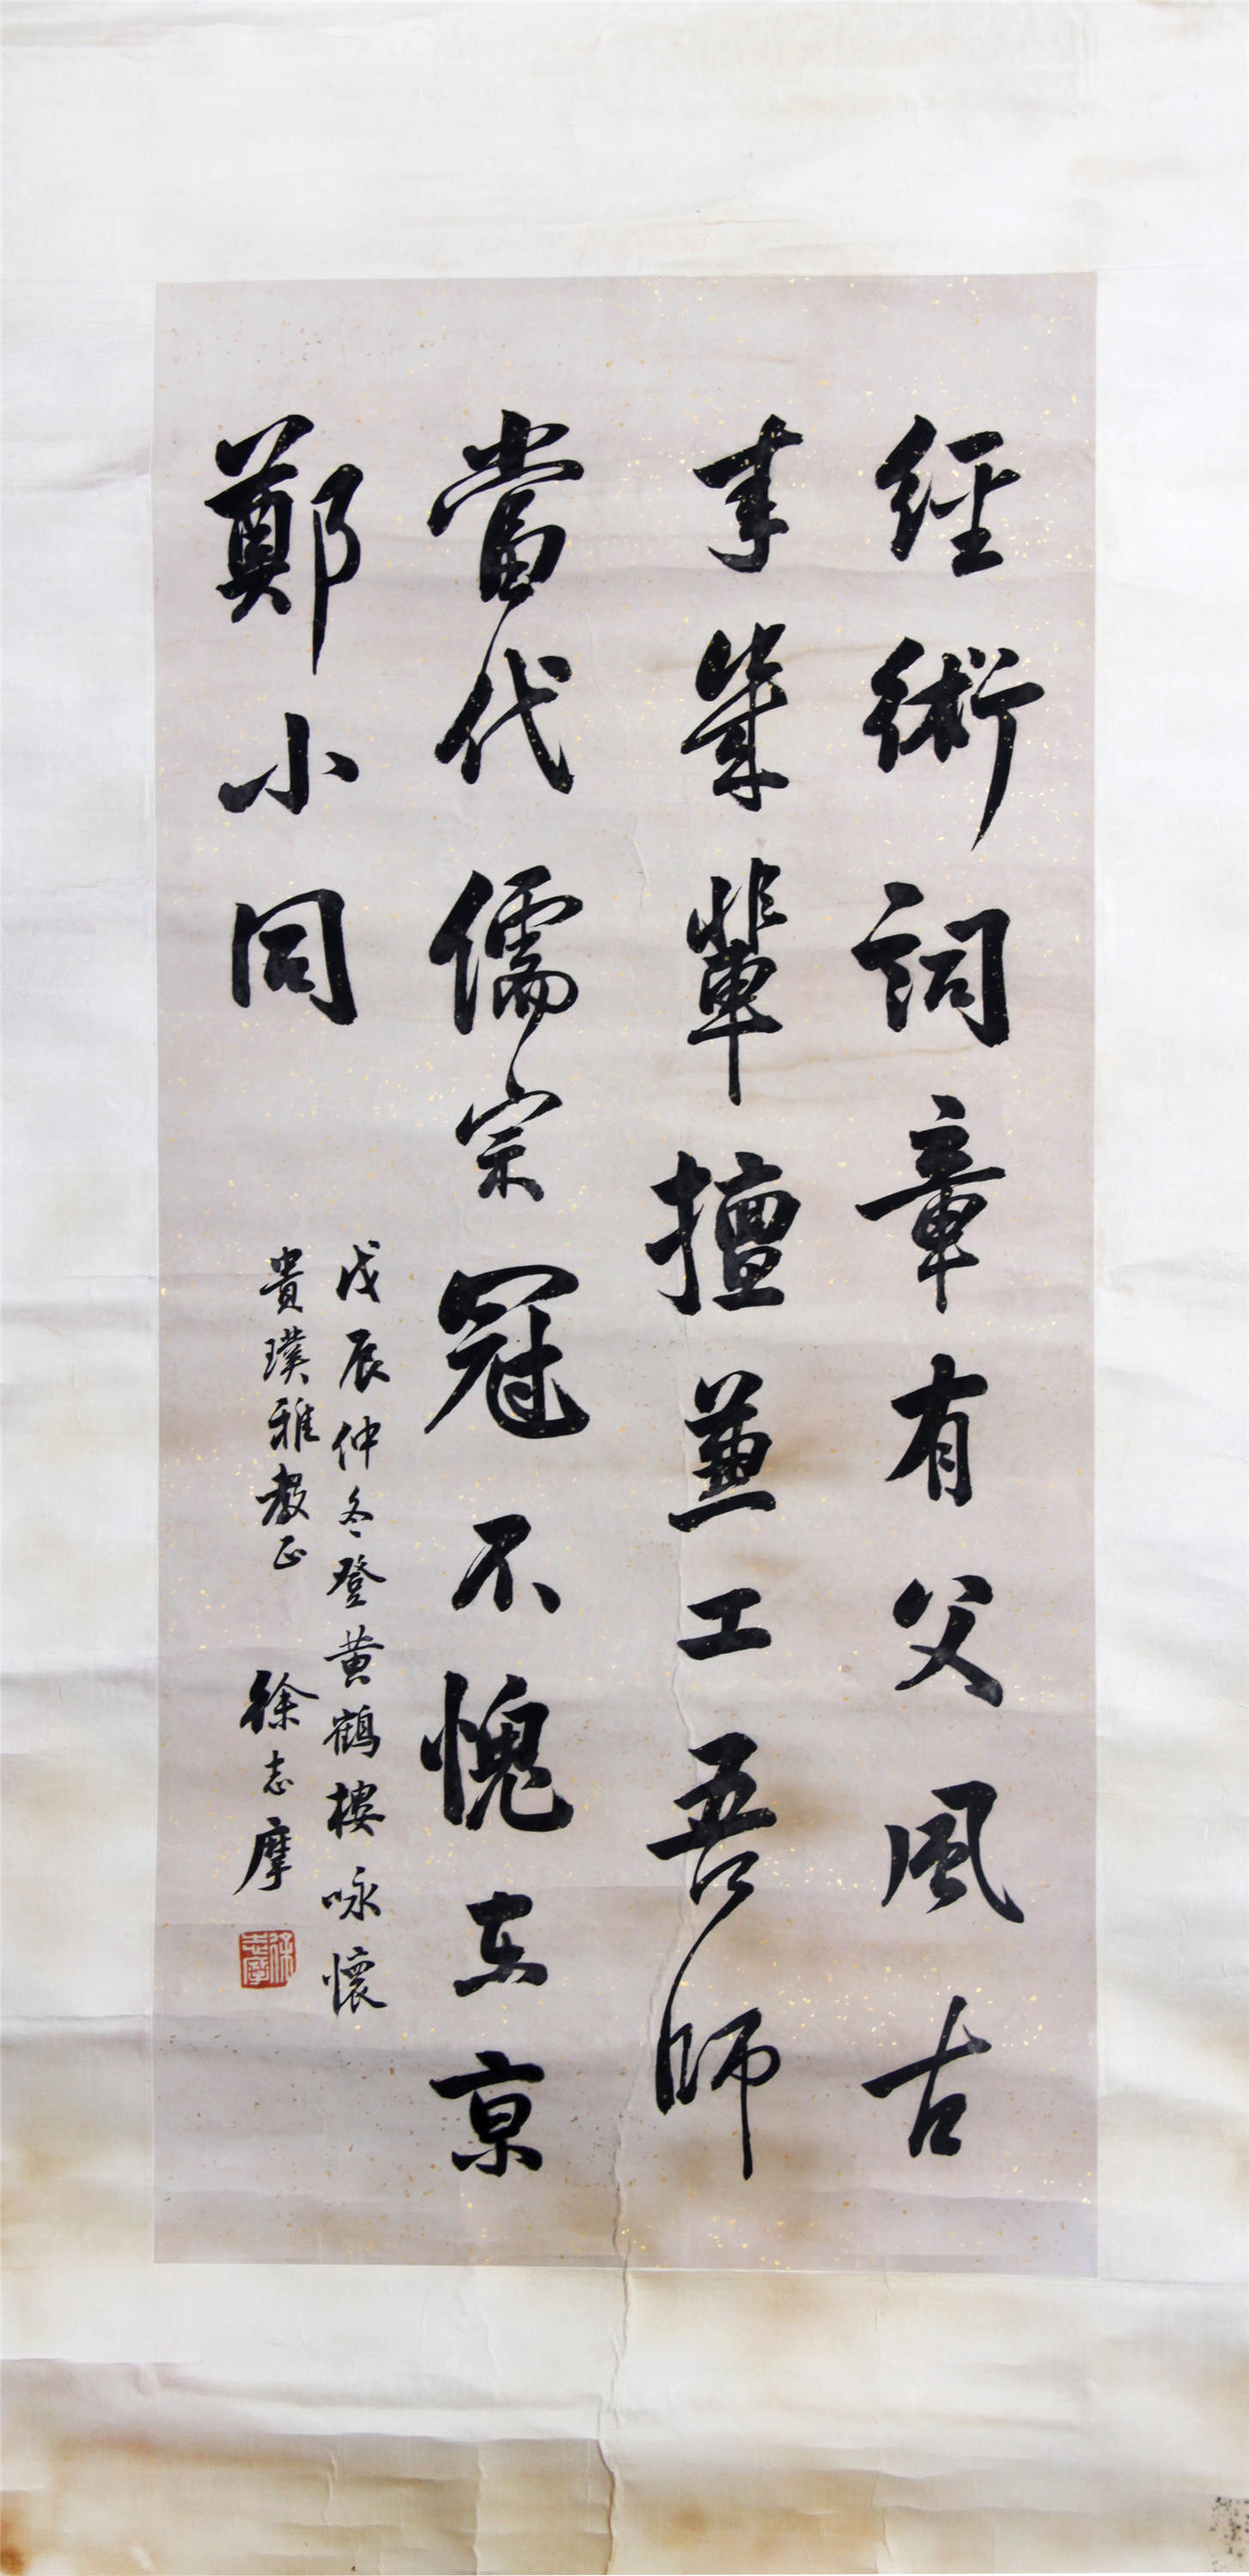 經術詞章有父風古
事業輩擅兼工吾師
當代儒宗冠不愧东京
鄭小同
戊辰仲冬登黄鶴樓咏懷
貴璞雅教正
徐志摩
徐志摩